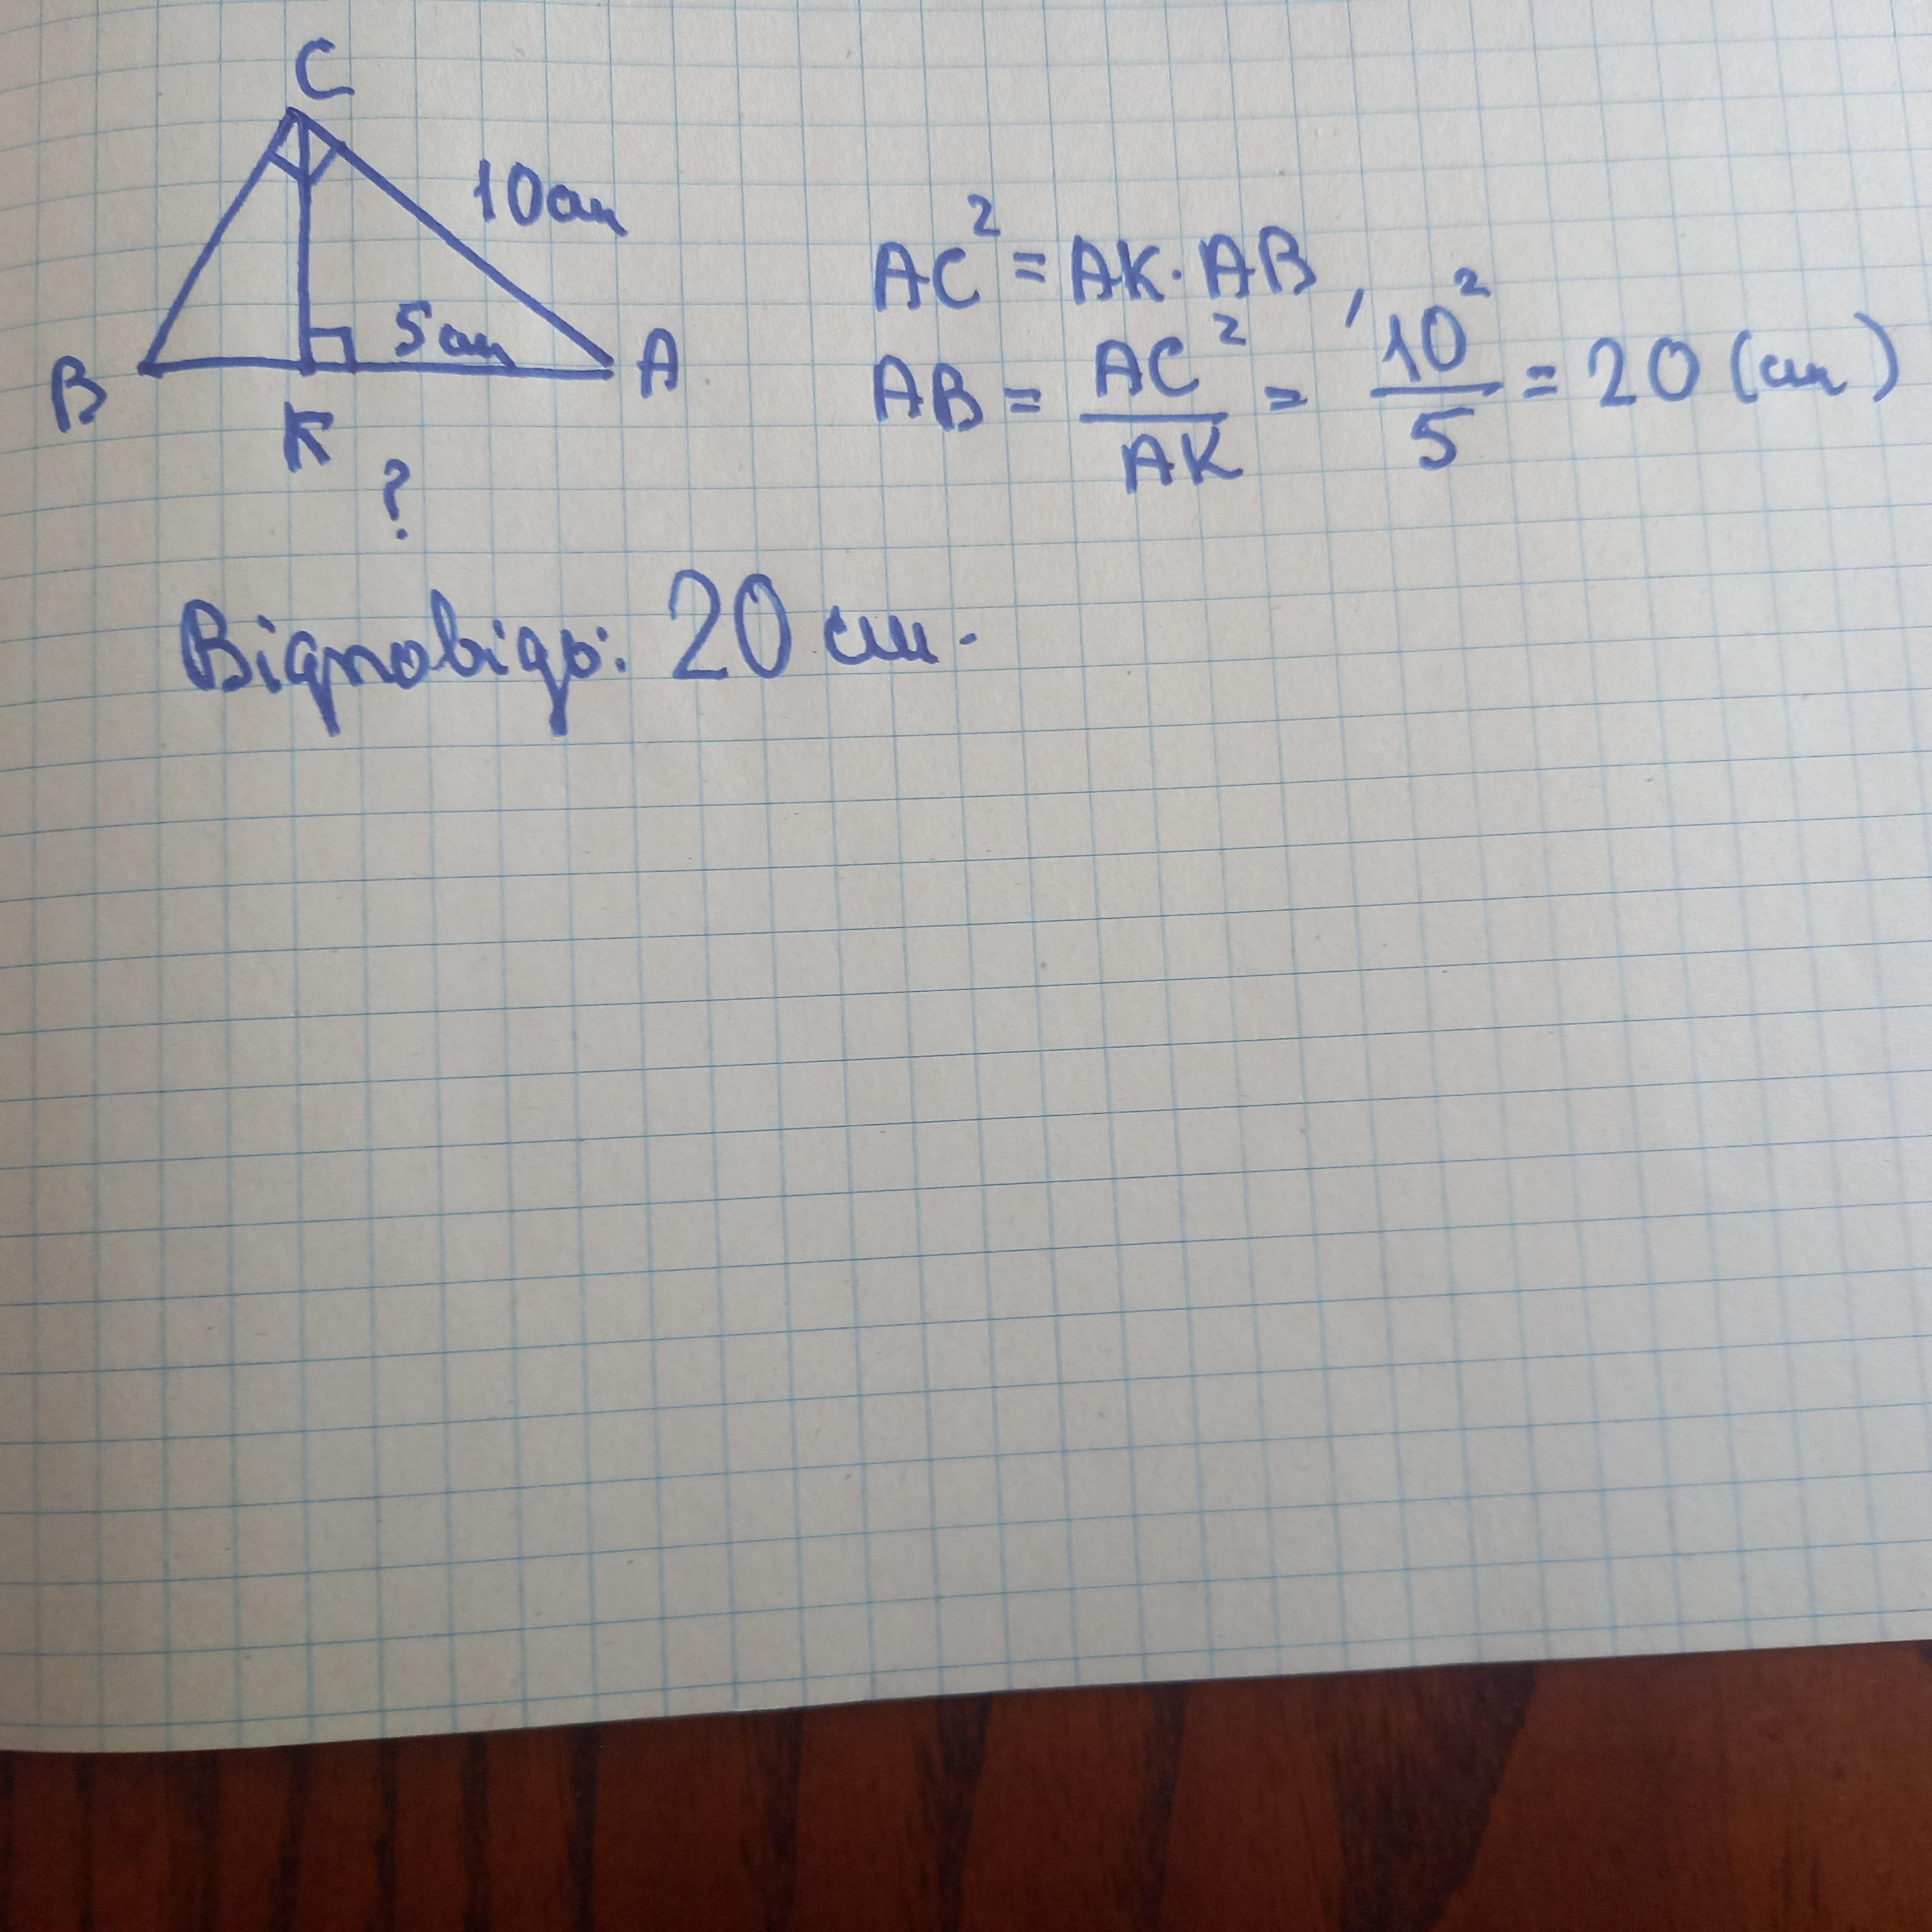 C
10см
5см
B
A
K
?
AC² = AK · AB,
AB = AC² / AK = 10² / 5 = 20 (см)
Відповідь: 20 см.